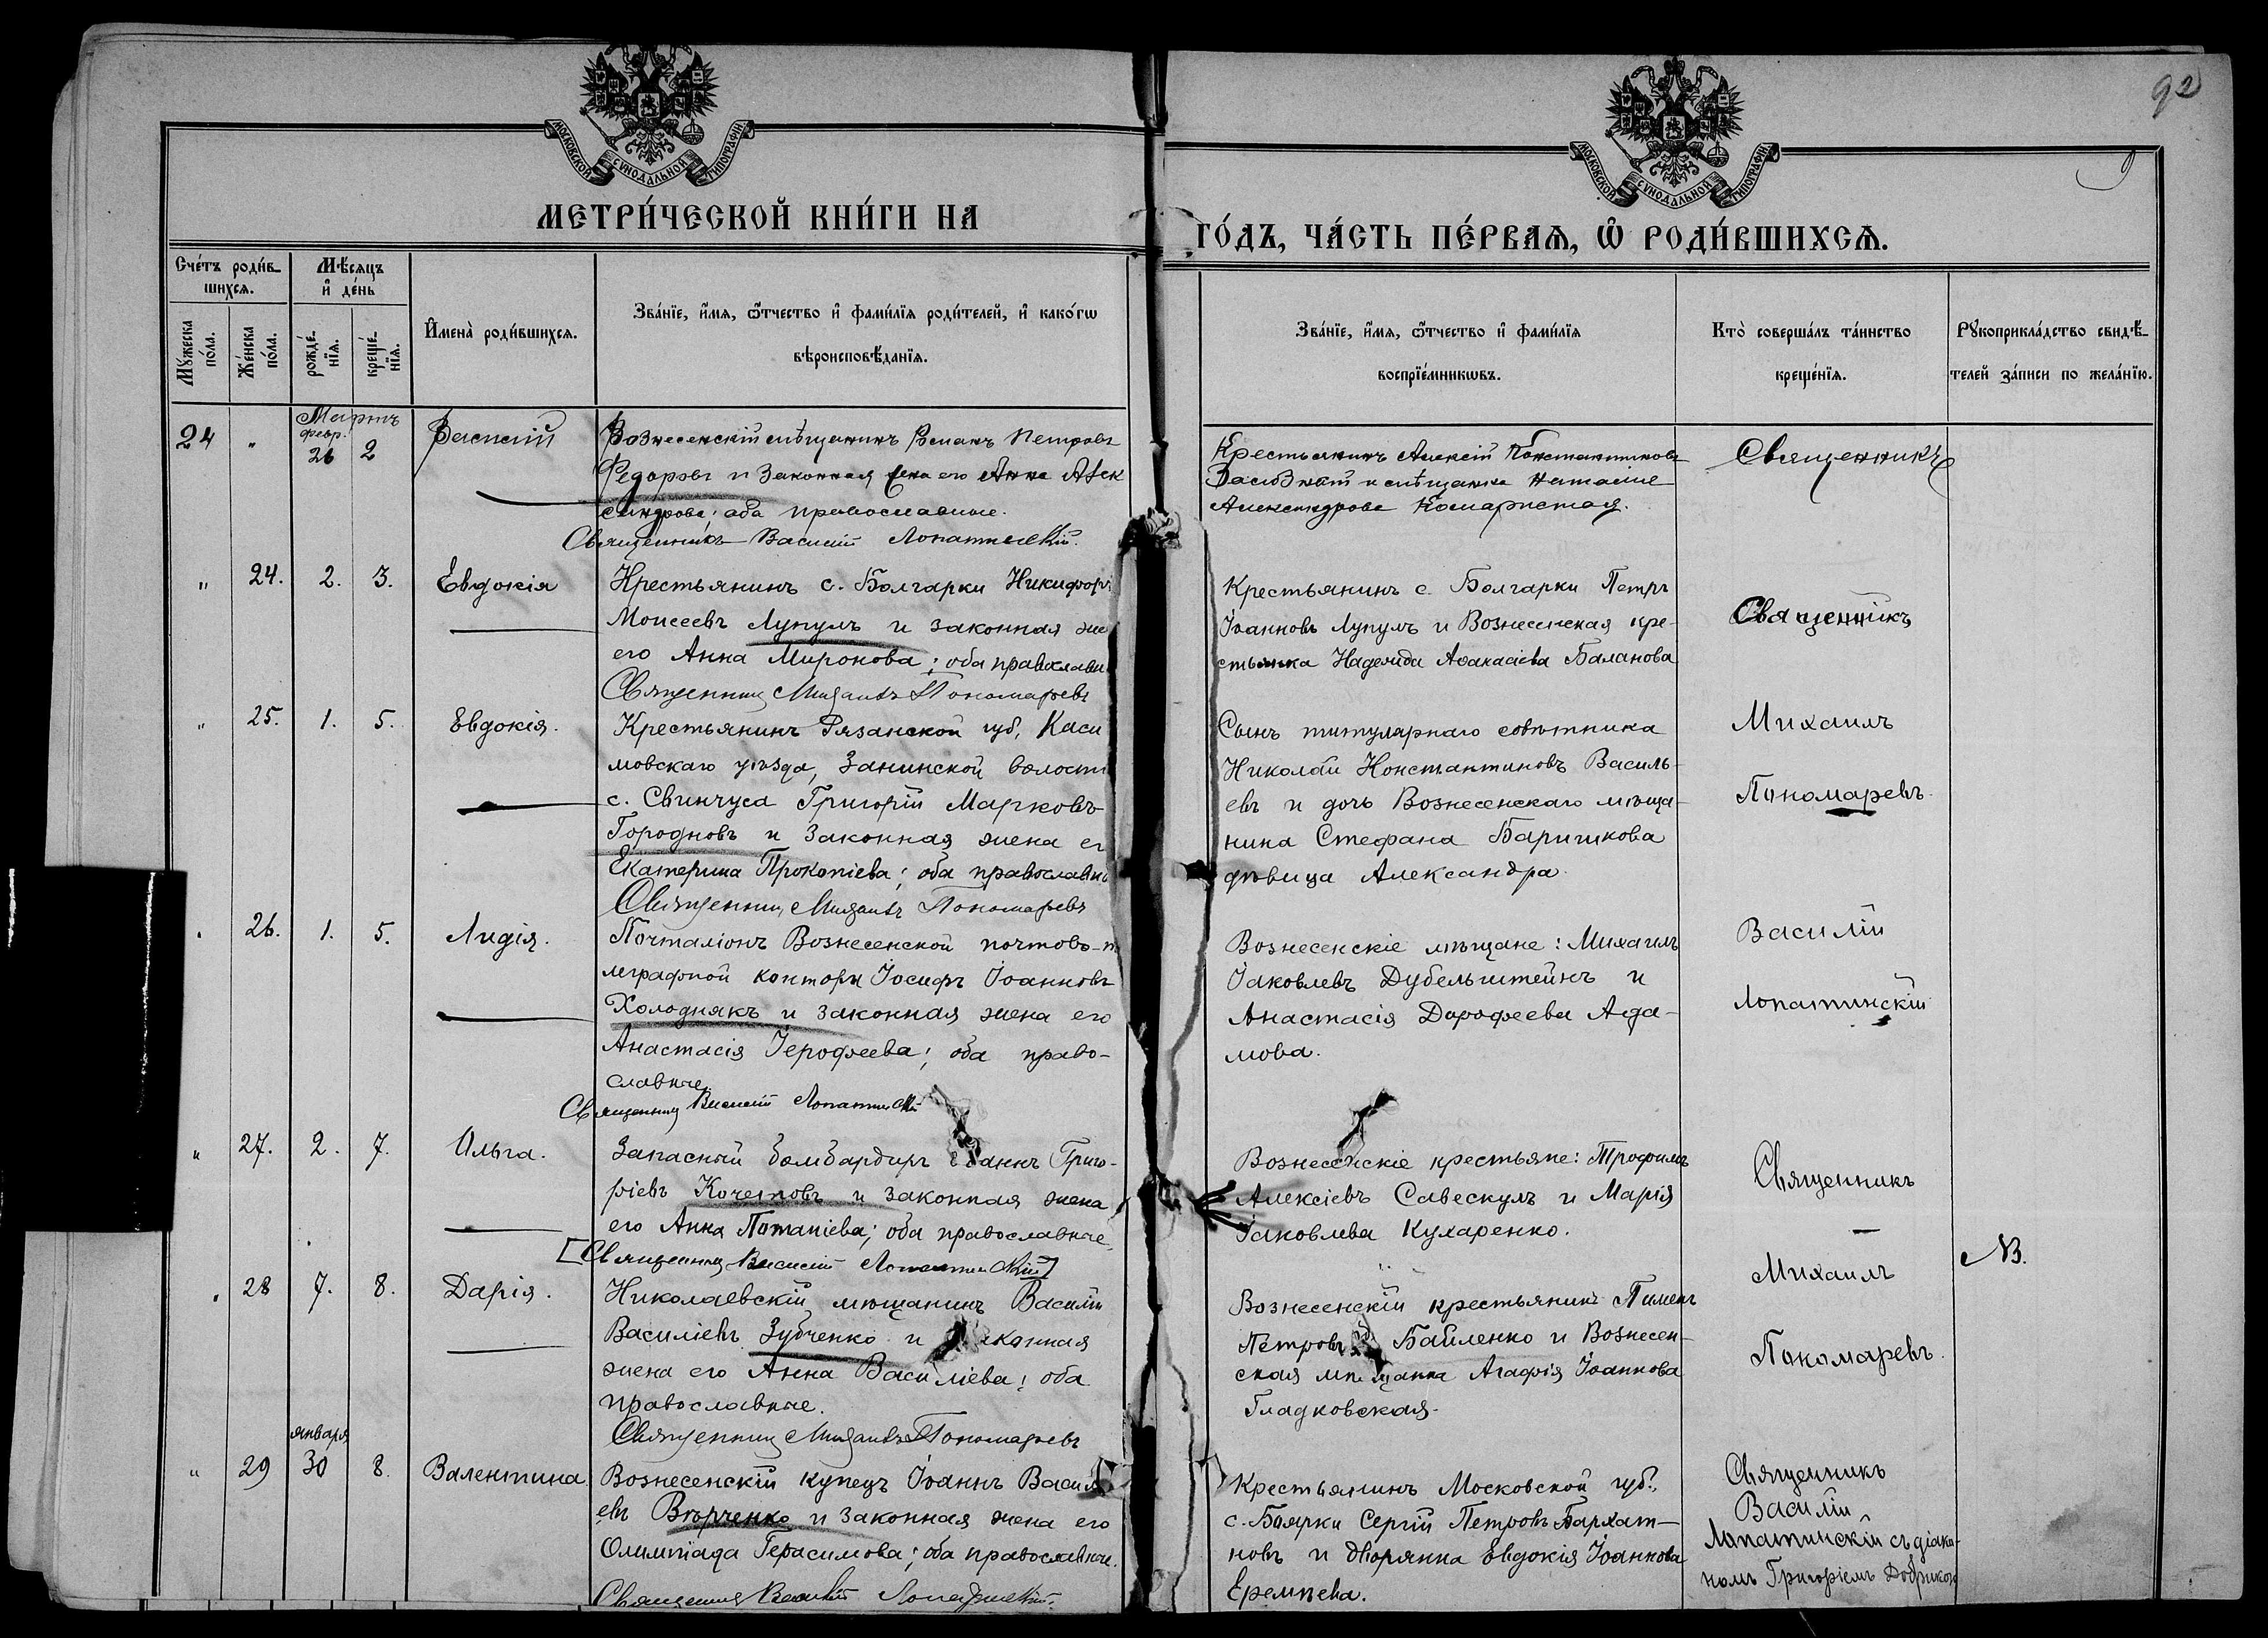 92
МОСКОВСКОЙ СУНОДАЛЬНОЙ ТИПОГРАФІИ
МОСКОВСКОЙ СУНОДАЛЬНОЙ ТИПОГРАФІИ
МЕТРИ́ЧЕСКОЙ КНИ́ГИ НА
ГО́ДЪ, ЧА́СТЬ ПЕ́РВАѦ, Ѡ҆ РОДИ́ВШИХСѦ.
Сче́тъ роди́в-
шихсѧ.
Мѣ́сѧцъ
и҆ де́нь
Мꙋ́жеска
по́ла.
Же́нска
по́ла.
рожде́-
нїѧ.
креще́-
нїѧ.
И҆мена̀ роди́вшихсѧ.
Зва́нїе, и҆́мѧ, ѻ҆́тчество и҆ фами́лїѧ роди́телей, и҆ како́гѡ
вѣроисповѣ́данїѧ.
Зва́нїе, и҆́мѧ, ѻ҆́тчество и҆ фами́лїѧ
воспрїе́мникѡвъ.
Кто̀ соверша́лъ та́инство
креще́нїѧ.
Рꙋкоприкла́дство свидѣ́-
телей за́писи по жела́нїю.
Мартъ
февр.
24 " 26 2 Василій
Вознесенскій мѣщанинъ Романъ Петровъ
Федоровъ и законная жена его Анна Алек
сандрова; оба православные.
Священникъ Василій Лопатинскій.
Крестьянинъ Алексій Константиновъ
и мѣщанка Наталія
Александрова Комаристая.
Священникъ
" 24. 2. 3. Евдокія
Крестьянинъ с. Болгарки Никифоръ
Моисеевъ Лупулъ и законная же
его Анна Миронова; оба православн
Священникъ Михаилъ Пономаревъ
Крестьянинъ с. Болгарки Петръ
Іоанновъ Лупулъ и Вознесенская кре-
стьянка Надежда Аѳанасіева Баланова
Священникъ
" 25. 1. 5. Евдокія.
Крестьянинъ Рязанской губ, Каси
мовскаго уѣзда, Занинской волости
с. Свинчуса Григорій Марковъ
Городновъ и законная жена ег
Екатерина Прокопіева; оба православн
Священникъ Михаилъ Пономаревъ
Сынъ титулярнаго совѣтника
Николай Константиновъ Василь-
евъ и дочь Вознесенскаго мѣща-
нина Стефана Баришкова
дѣвица Александра
Михаилъ
Пономаревъ
" 26. 1. 5. Лидія.
Почталіонъ Вознесенской почтово-т
леграфной конторы Іосифъ Іоанновъ
Холоднякъ и законная жена его
Анастасія Іерофеева; оба право-
славные.
Священникъ Василій Лопатинскій
Вознесенскіе мѣщане: Михаилъ
Іаковлевъ Дубельштейнъ и
Анастасія Дорофеева Ада-
мова.
Василій
Лопатинскій
" 27. 2. 7. Ольга.
Запасный бомбардиръ Іоаннъ Григо-
ріевъ Кочетовъ и законная жена
его Анна Потапіева; оба православные
[Священникъ Василій Лопатинскій]
Вознесенскіе крестьяне: Трофимъ
Алексіевъ Савескулъ и Марія
Іаковлева Кухаренко.
Священникъ
" 28 7. 8. Дарія.
Николаевскій мѣщанинъ Василій
Василіевъ Зубченко и законная
жена его Анна Василіева; оба
православные.
Священникъ Михаилъ Пономаревъ
Вознесенскій крестьянинъ Пименъ
Петровъ Байленко и Вознесен-
ская мѣщанка Агафія Іоаннова
Гладковская.
Михаилъ
Пономаревъ.
NB.
января
" 29 30 8. Валентина
Вознесенскій купецъ Іоаннъ Васил
евъ Вѣрченко и законная жена его
Олимпіада Герасимова; оба православные.
Священникъ Василій Лопатинскій.
Крестьянинъ Московской губ.,
с. Боярки Сергій Петровъ Бархат-
новъ и дворянка Евдокія Іоаннова
Еремѣева.
Священникъ
Василій
Лопатинскій съ діако-
номъ Григоріемъ